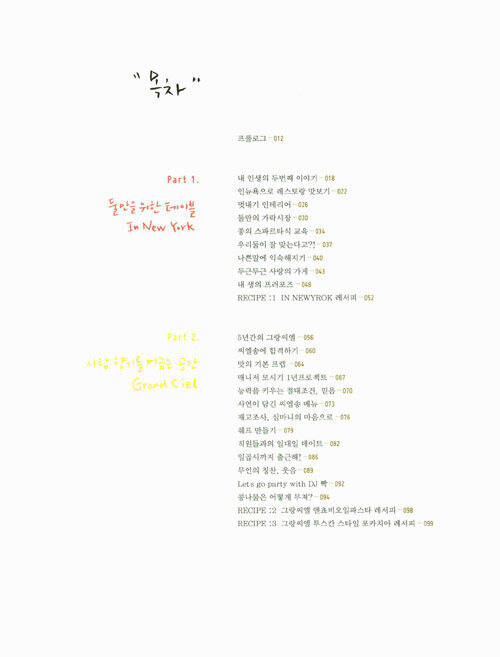 "목차"
프롤로그 - 012
Part 1.
둘만을 위한 테이블
In New York
내 인생의 두번째 이야기 - 018
인뉴욕으로 레스토랑 맛보기 - 022
멋내기 인테리어 - 026
둘만의 가락시장 - 030
종의 스파르타식 교육 - 034
우리들이 잘 맞는다고?! - 037
나쁜말에 익숙해지기 - 040
두근두근 사랑의 가게 - 043
내 생의 프러포즈 - 048
RECIPE :1 IN NEWYROK 레서피 - 052
Part 2.
사람 향기를 머금은 공간
Grand Ciel
5년간의 그랑씨엘 - 056
씨엘송에 합격하기 - 060
맛의 기본 프렙 - 064
매니저 모시기 1년프로젝트 - 067
능력을 키우는 절대조건, 믿음 - 070
사연이 담긴 씨엘송 메뉴 - 073
재고조사, 심마니의 마음으로 - 076
쉐프 만들기 - 079
직원들과의 일대일 데이트 - 082
일곱시까지 출근해! - 086
무언의 칭찬, 웃음 - 089
Lets go party with DJ 빡 - 092
콩나물은 어떻게 무쳐? - 094
RECIPE :2 그랑씨엘 앤쵸비오일파스타 레서피 - 098
RECIPE :3 그랑씨엘 투스칸 스타일 포카치아 레서피 - 099